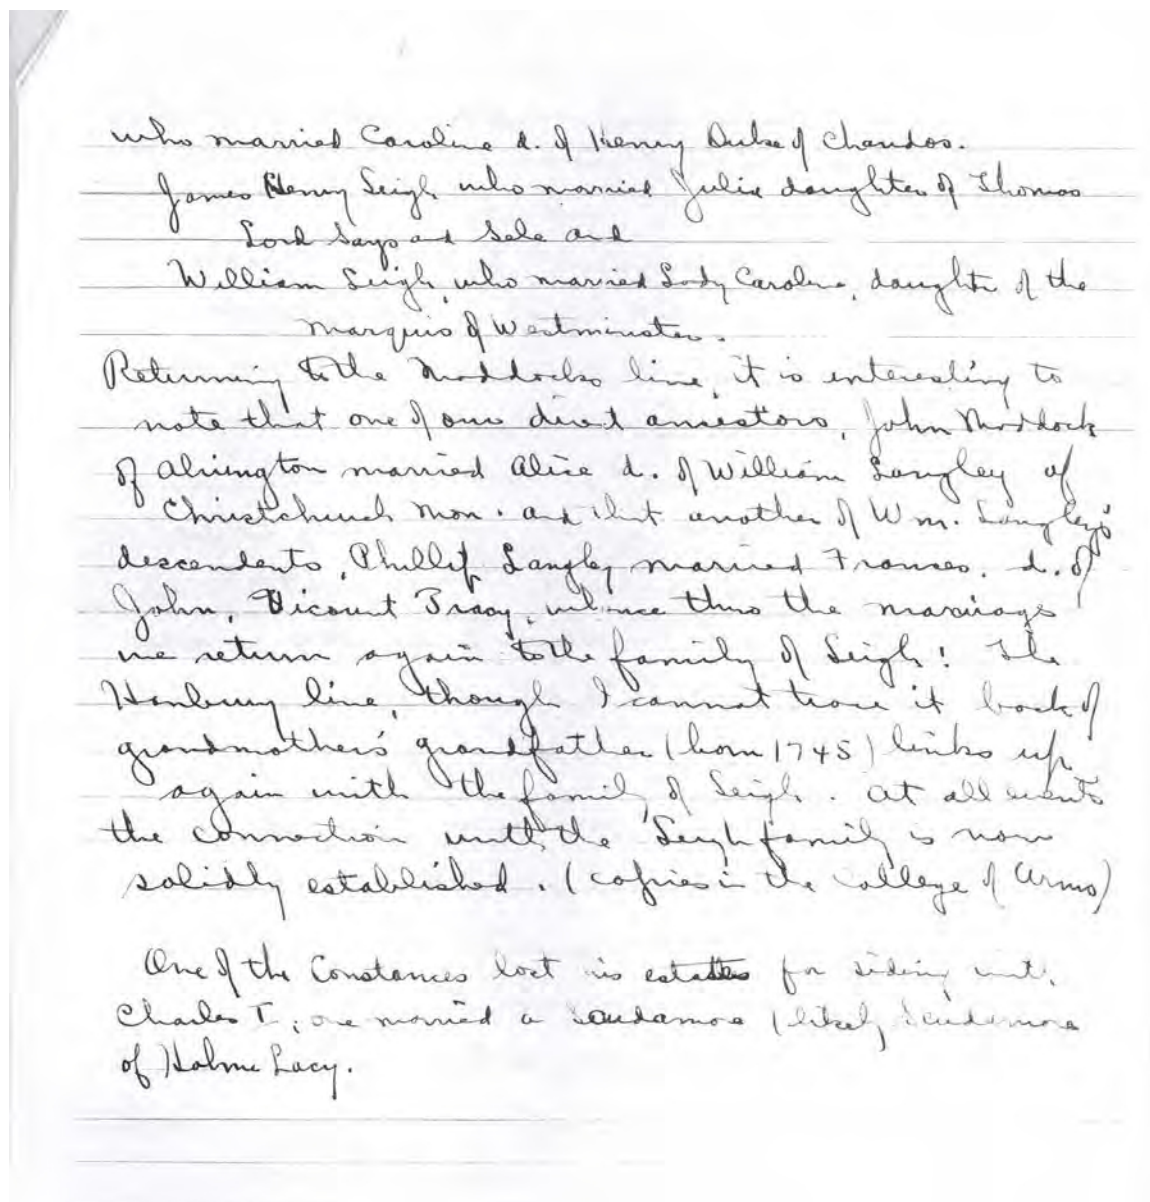 who married Caroline d. of Henry Duke of Chandos.
James Henry Leigh who married Julia daughter of Thomas
Lord Saye and Sele and
William Leigh, who married Lady Caroline, daughter of the
Marquis of Westminster.
Returning to the Maddocks line, it is interesting to
note that one of our direct ancestors, John Maddock
of Alvington married Alice d. of William Langley of
Christchurch Mon. and that another of Wm. Langley's
descendents, Phillip Langley married Frances, d. of
John, Vicount Tracy, whence thro the marriage
we return again to the family of Leigh! The
Hanbury line, though I cannot trace it back of
grandmother's grandfather (born 1745) links up
again with the family of Leigh. At all events
the connection with the Leigh family is now
solidly established. (copies in the College of Arms)
One of the Constances lost his estates for siding with
Charles I, one married a Scudamore (likely Scudamore
of Holme Lacy.